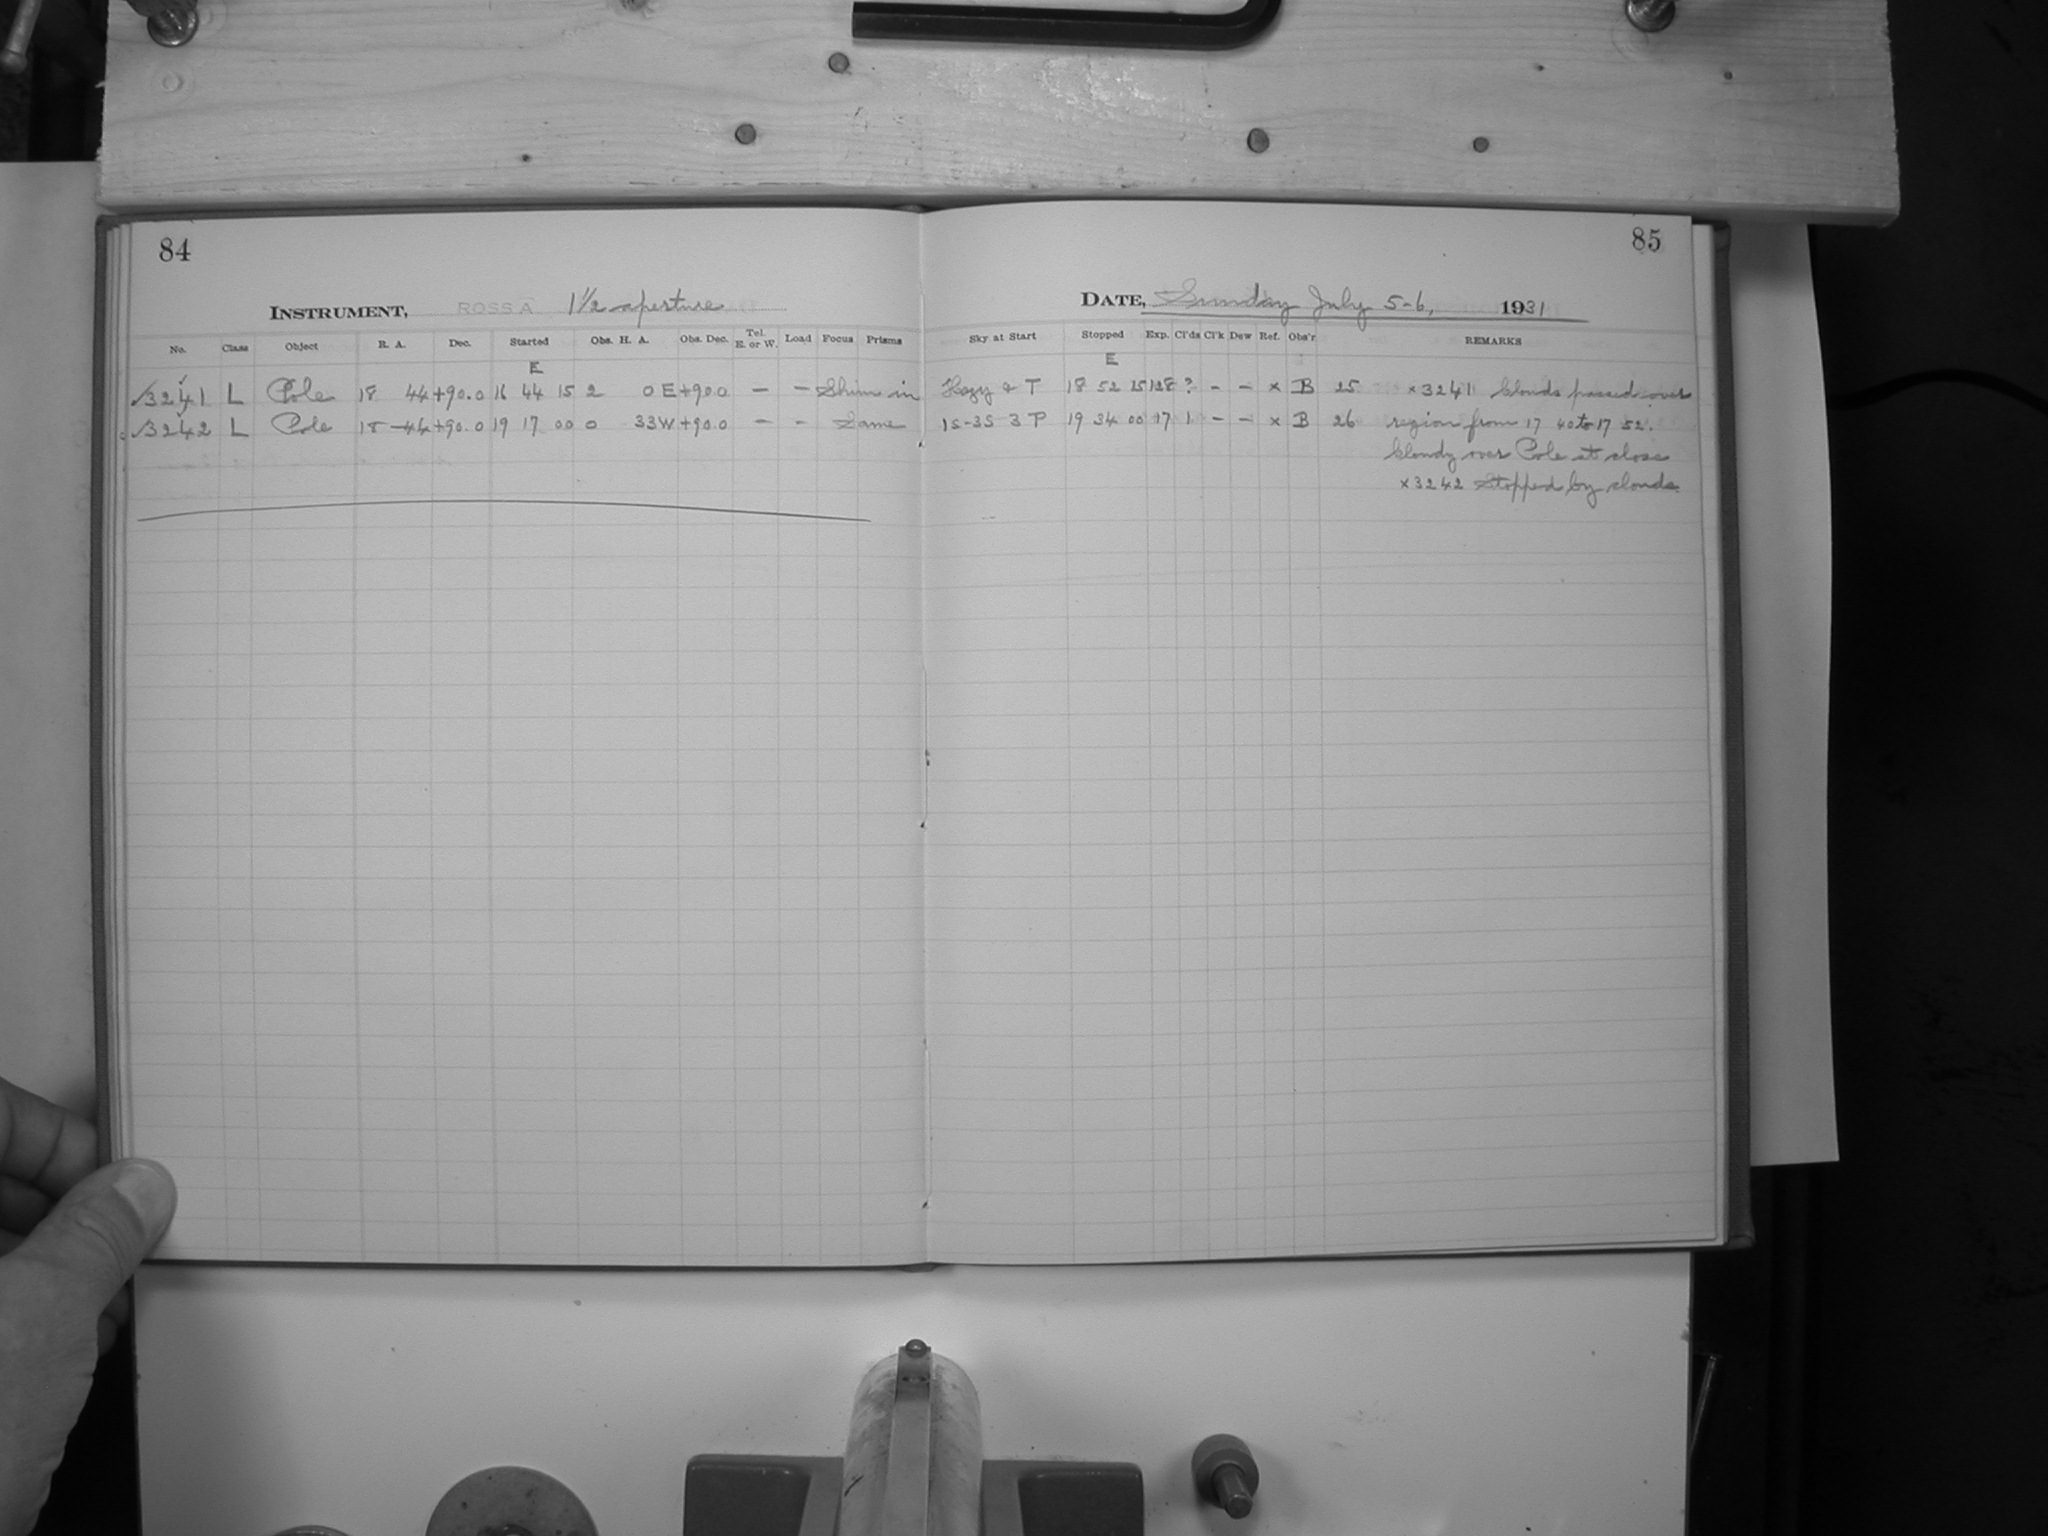 84
INSTRUMENT, ROSS A 1½ aperture
No. Class Object R. A. Dec. Started Obs. H. A. Obs. Dec. Tel. E. or W. Load Focus Prisms
E
✓3241 L Pole 18 44 +90.0 16 44 15 2 0 E +90.0 — — Shims in
✓3242 L Pole 18 44 +90.0 19 17 00 0 33W +90.0 — - Same
85
DATE, Sunday July 5-6, 1931
Sky at Start Stopped Exp. Cl'ds Cl'k Dew Ref. Obs'r REMARKS
E
Hazy & T 18 52 15 128 ? - — x B 25 x3241 Clouds passed over
1S-3S 3 P 19 34 00 17 1 - — x B 26 region from 17 40 to 17 52.
Cloudy over Pole at close
x3242 Stopped by clouds